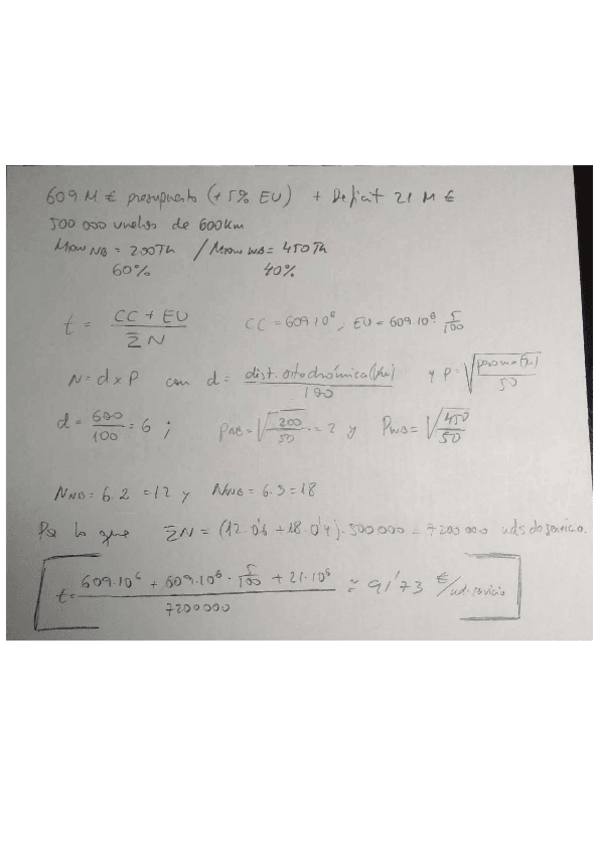 609 M € presupuesto (+5% EU) + Deficit 21 M €
500 000 vuelos de 600km
MTOW NB = 200Tn / MTOW WB = 450Tn
60% 40%
t = (CC + EU) / ΣN CC = 609·10⁶, EU = 609·10⁶ · 5/100
N = d x P con d = dist. ortodrómica (km) / 100 y P = √(peso max (Tn) / 50)
d = 600/100 = 6 ; P_NB = √(200/50) = 2 y P_WB = √(450/50)
N_NB = 6·2 = 12 y N_WB = 6·3 = 18
Por lo que ΣN = (12·0'6 + 18·0'4)·500000 = 7200000 uds de servicio.
t = (609·10⁶ + 609·10⁶ · 5/100 + 21·10⁶) / 7200000 = 91'73 €/ud. servicio